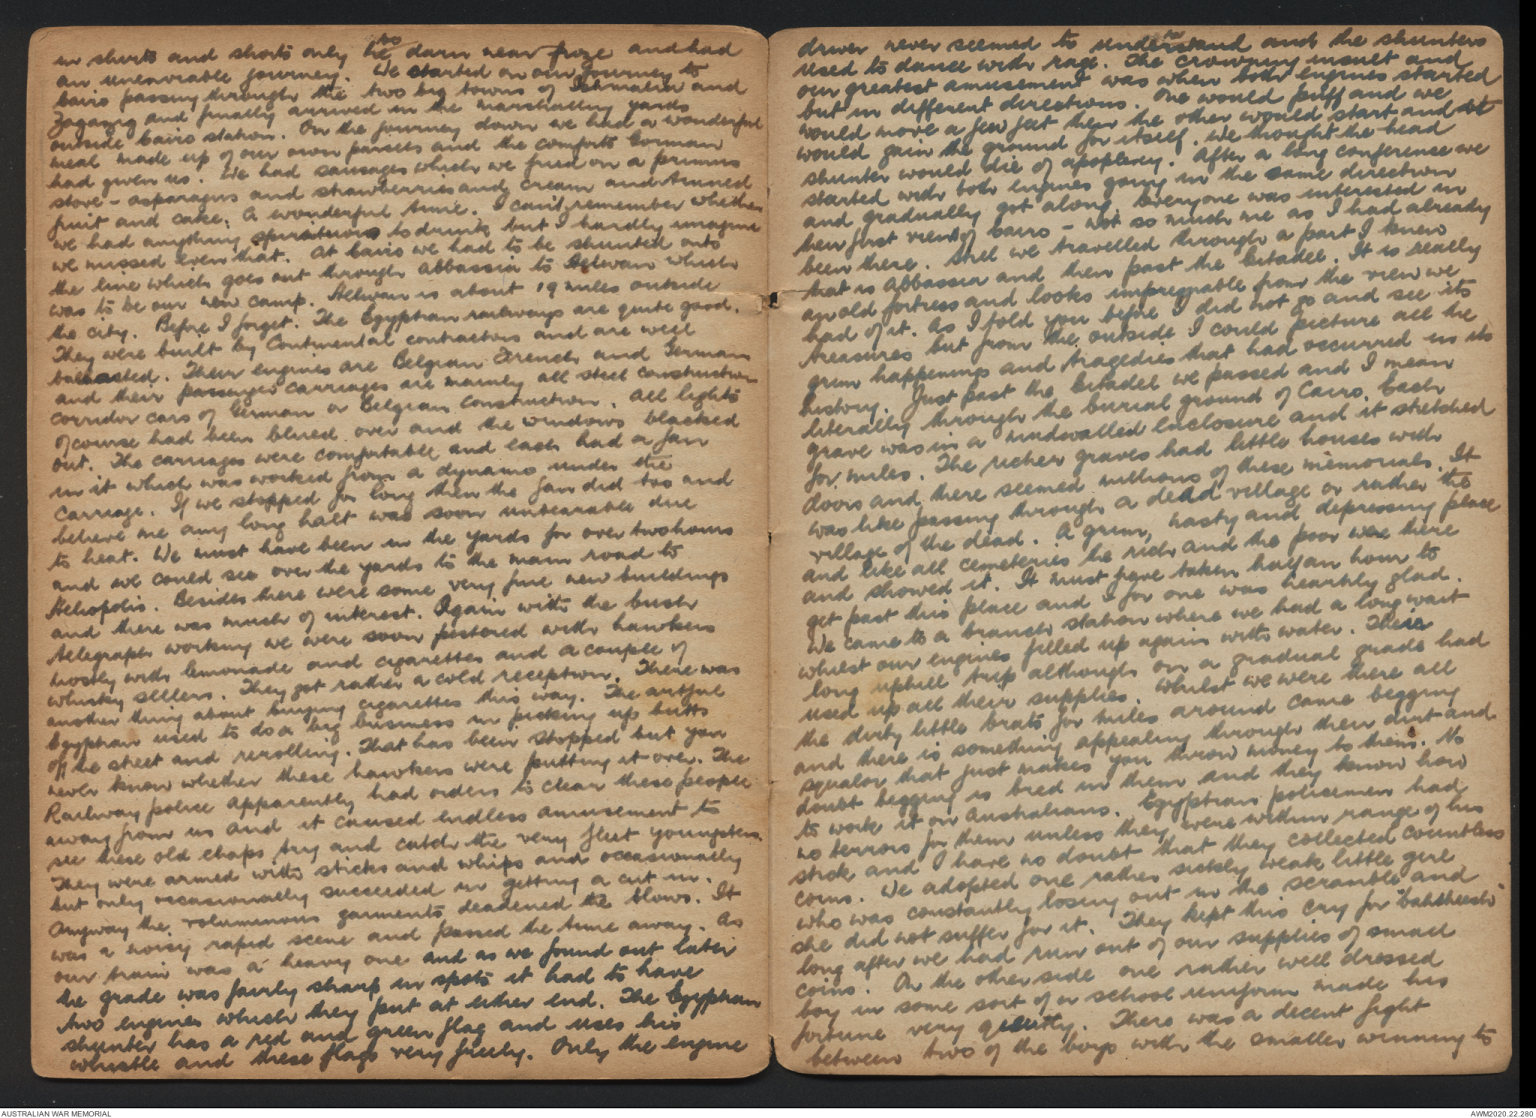 in shirts and shorts only so he darn near froze and had
an unenviable journey. We started on our journey to
Cairo passing through the two big towns of Ishmalia and
Zagazig and finally arrived in the marshalling yards
outside Cairo station. On the journey down we had a wonderful
meal made up of our own parcels and the comforts Gorman
had given us. We had sausages which we fried on a primus
stove - asparagus and strawberries and cream and tinned
fruit and cake. A wonderful time. I can't remember whether
we had anything spirituous to drink but I hardly imagine
we missed even that. At Cairo we had to be shunted onto
the line which goes out through Abbassia to Helwan which
was to be our new camp. Helwan is about 19 miles outside
the city. Before I forget. The Egyptian railways are quite good.
They were built by Continental contractors and are well
ballasted. Their engines are Belgian French and German
and their passenger carriages are mainly all steel construction
corridor cars of German or Belgian construction. All lights
of course had been blued over and the windows blacked
out. The carriages were comfortable and each had a fan
in it which was worked from a dynamo under the
carriage. If we stopped for long then the fan did too and
believe me any long halt was soon unbearable due
to heat. We must have been in the yards for over two hours
and we could see over the yards to the main road to
Heliopolis. Besides there were some very fine new buildings
and there was much of interest. Again with the bush
telegraph working we were soon pestered with hawkers
mostly with lemonade and cigarettes and a couple of
whisky sellers. They got rather a cold reception. There was
another thing about buying cigarettes this way. The artful
Egyptian used to do a big business in picking up butts
off the street and rerolling. That has been stopped but you
never know whether these hawkers were putting it over. The
Railway police apparently had orders to clear these people
away from us and it caused endless amusement to
see these old chaps try and catch the very fleet youngsters.
They were armed with sticks and whips and occasionally
but only occasionally succeeded in getting a cut in.
Anyway the voluminous garments deadened the blows. It
was a noisy rapid scene and passed the time away. As
our train was a heavy one and as we found out later
the grade was fairly sharp in spots it had to have
two engines which they put at either end. The Egyptian
shunter has a red and green flag and uses his
whistle and these flags very freely. Only the engine
driver never seemed to understand and the shunters
used to dance with rage. The crowning insult and
our greatest amusement was when both engines started
but in different directions. One would puff and we
would move a few feet then the other would start and it
would gain the ground for itself. We thought the head
shunter would die of apoplexy. After a long conference we
started with both engines going in the same direction
and gradually got along. Everyone was interested in
their first view of Cairo - not so much me as I had already
been there. Still we travelled through a part I knew
that is Abbassia and then past the Citadel. It is really
an old fortress and looks impregnable from the view we
had of it. As I told you before I did not go and see its
treasures but from the outside I could picture all the
grim happenings and tragedies that had occurred in its
history. Just past the Citadel we passed and I mean
literally through the burial ground of Cairo. Each
grave was in a mudwalled enclosure and it stretched
for miles. The richer graves had little houses with
doors and there seemed millions of these memorials. It
was like passing through a dead village or rather the
village of the dead. A grim, nasty and depressing place
and like all cemeteries the rich and the poor were there
and showed it. It must have taken half an hour to
get past this place and I for one was heartily glad.
We came to a branch station where we had a long wait
whilst our engines filled up again with water. Their
long uphill trip although on a gradual grade had
used up all their supplies. Whilst we were there all
the dirty little brats for miles around came begging
and there is something appealing through their dirt and
squalor that just makes you throw money to them. No
doubt begging is bred in them and they know how
to work it on Australians. Egyptian policemen had
no terrors for them unless they were within range of his
stick and I have no doubt that they collected countless
coins. We adopted one rather sickly weak little girl
who was constantly losing out in the scramble and
she did not suffer for it. They kept this cry for "bahksheesh"
long after we had run out of our supplies of small
coins. On the other side one rather well dressed
boy in some sort of a school uniform made his
fortune very quietly. There was a decent fight
between two of the boys with the smaller winning to
AUSTRALIAN WAR MEMORIAL
AWM2020.22.280